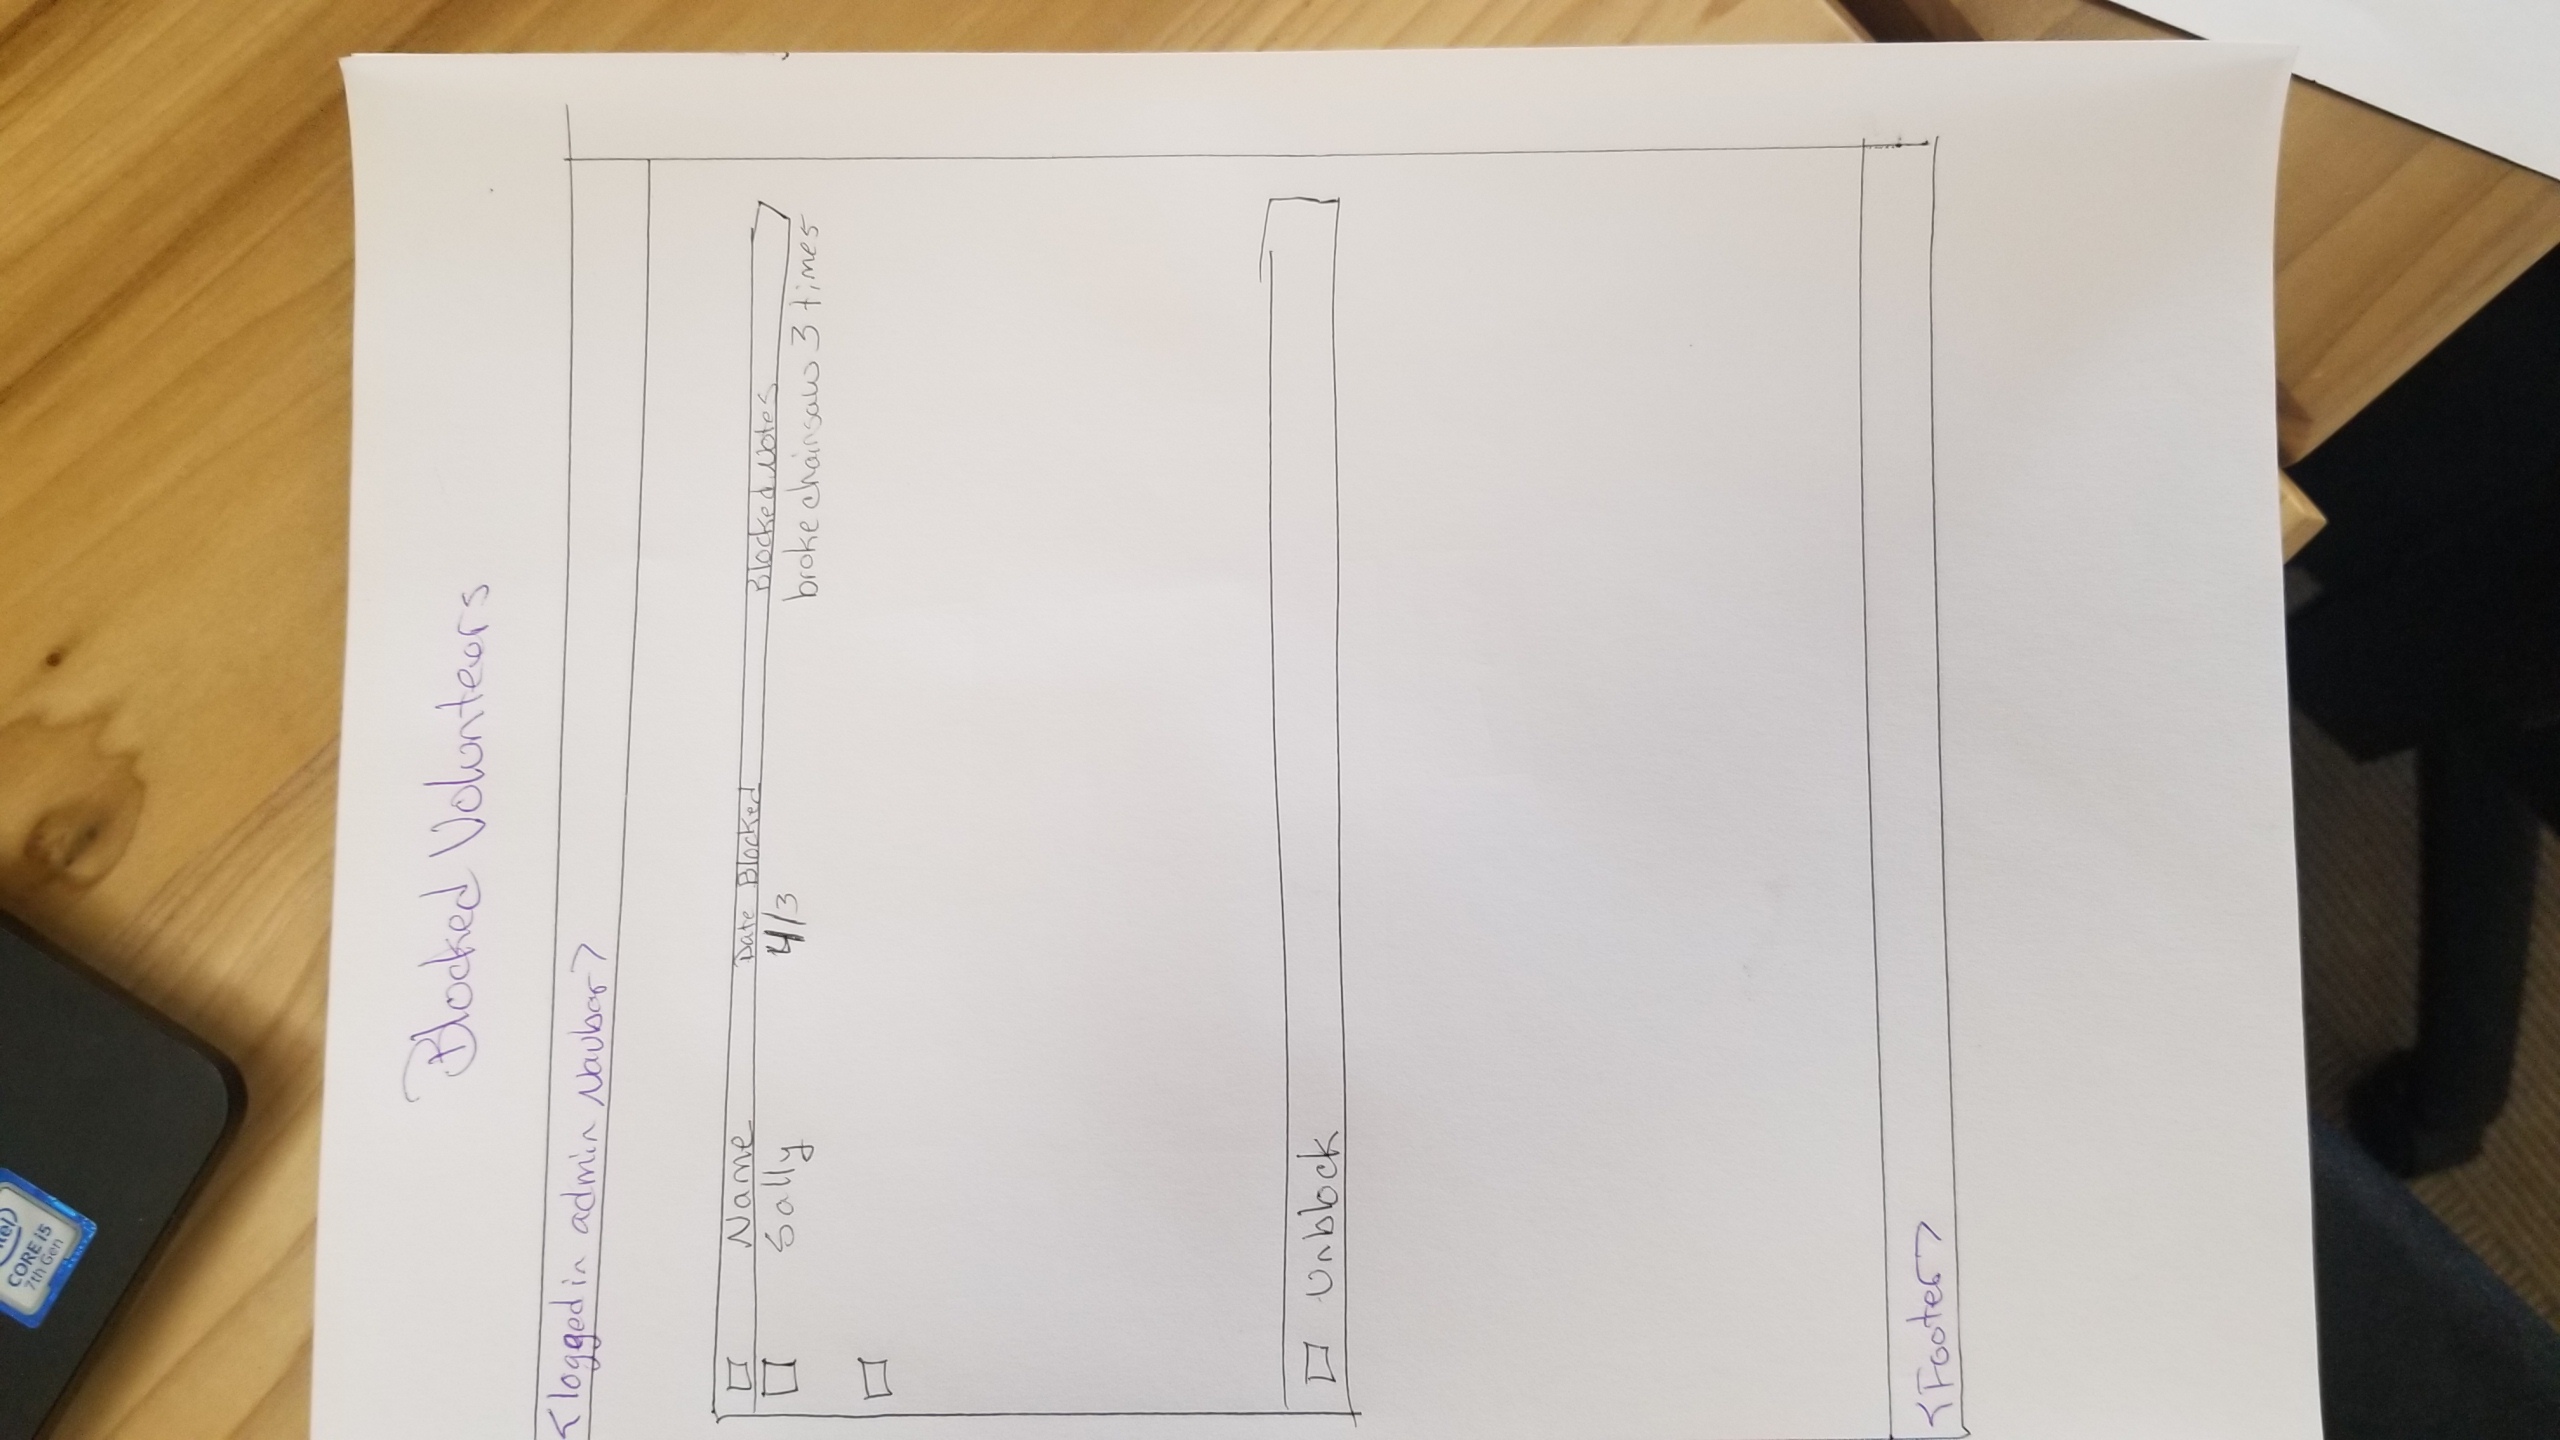 intel
CORE i5
7th Gen
Blocked Volunteers
<logged in admin Navbar>
Name Date Blocked Blocked Notes
Sally 4/3 broke chainsaw 3 times
Unblock
<Footer>